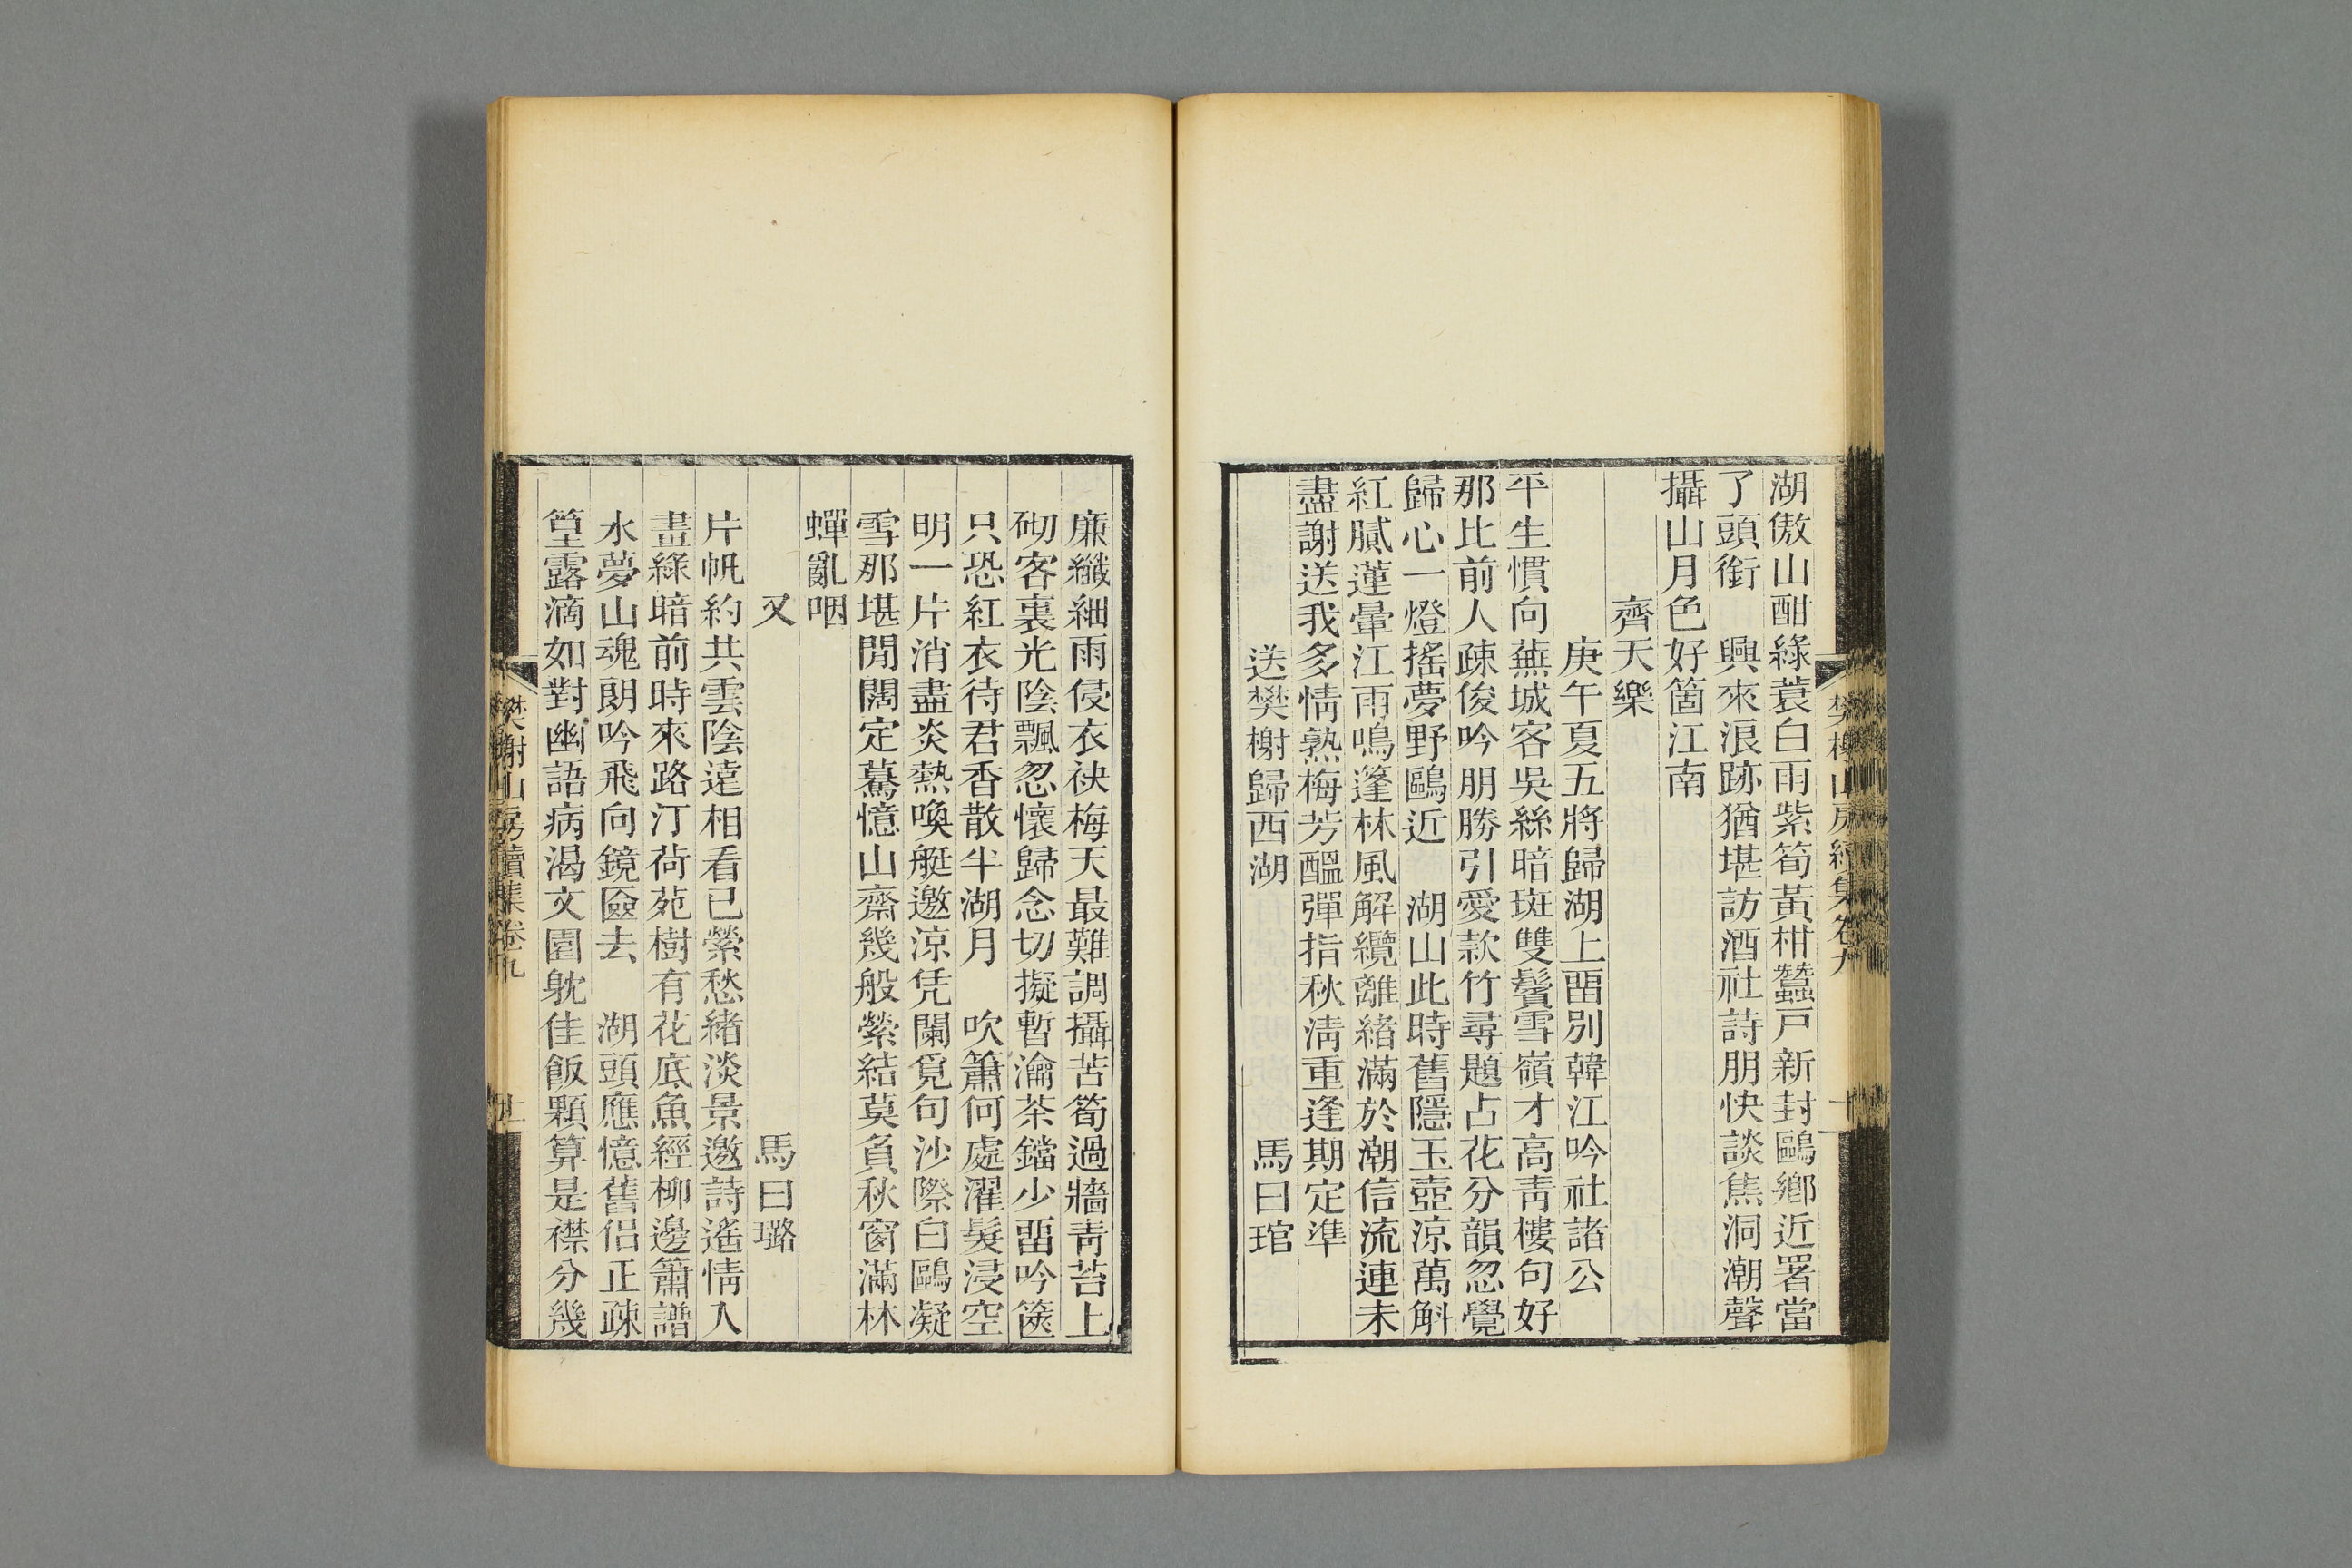 湖傲山酣綠蓑白雨紫筍黃柑蠶戸新封鷗鄉近署當
了頭銜　興來浪跡猶堪訪酒社詩朋快談焦洞潮聲
攝山月色好箇江南
齊天樂
庚午夏五將歸湖上畱別韓江吟社諸公
平生慣向蕪城客吳絲暗斑雙鬢雪嶺才高靑樓句好
那比前人疎俊吟朋勝引愛款竹尋題占花分韻忽覺
歸心一燈搖夢野鷗近　湖山此時舊隱玉壺涼萬斛
紅膩蓮暈江雨鳴篷林風解纜離緒滿於潮信流連未
盡謝送我多情熟梅芳醞彈指秋淸重逢期定準
送樊榭歸西湖　馬曰琯
廉纖細雨侵衣袂梅天最難調攝苦筍過牆靑苔上
砌客裏光陰飄忽懷歸念切擬暫瀹茶鐺少畱吟篋
只恐紅衣待君香散半湖月　吹簫何處濯髮浸空
明一片消盡炎熱喚艇邀涼凭闌覓句沙際白鷗凝
雪那堪閒闊定驀憶山齋幾般縈結莫負秋窗滿林
蟬亂咽
又　馬曰璐
片帆約共雲陰遠相看已縈愁緒淡景邀詩遙情入
畫綠暗前時來路汀荷苑樹有花底魚經柳邊簫譜
水夢山魂朗吟飛向鏡匳去　湖頭應憶舊侶正疎
篁露滴如對幽語病渴文園躭佳飯顆算是襟分幾
樊榭山房續集卷九